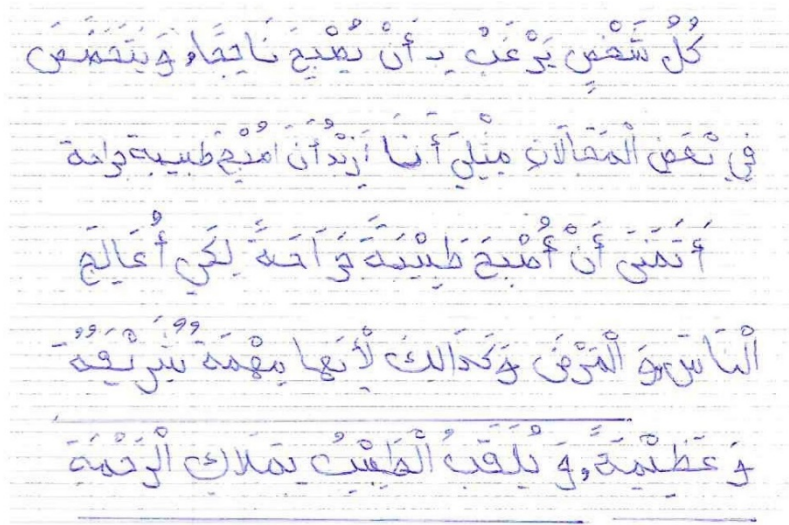 كُلُ شَخْصٍ يَرْغَبُ بِـ أَنْ يُصْبِحَ نَاجِحًا، وَ يَتَخَصَّصَ
فِي بَعْضِ الْمَجَالَاتِ مِثْلِيَ أَنَا أُرِيْدُ أَنْ اصْبِحَ طبيبة جراحة
أَتَمَنَى أَنْ أُصْبِحَ طَبِيْبَةً جَرَاحَةً لِكَي أُعَالِجَ
الْنَاسَ وَ الْمَرْضَى وَكَذَالِكَ لْأَنَها مِهْمَةٌ شَرِيْفَةٌ
وَ عَظِيْمَةً، وَ يُلَقَبُ الْطَبِيْبُ بِمَلَاكِ الْرَحْمَةِ